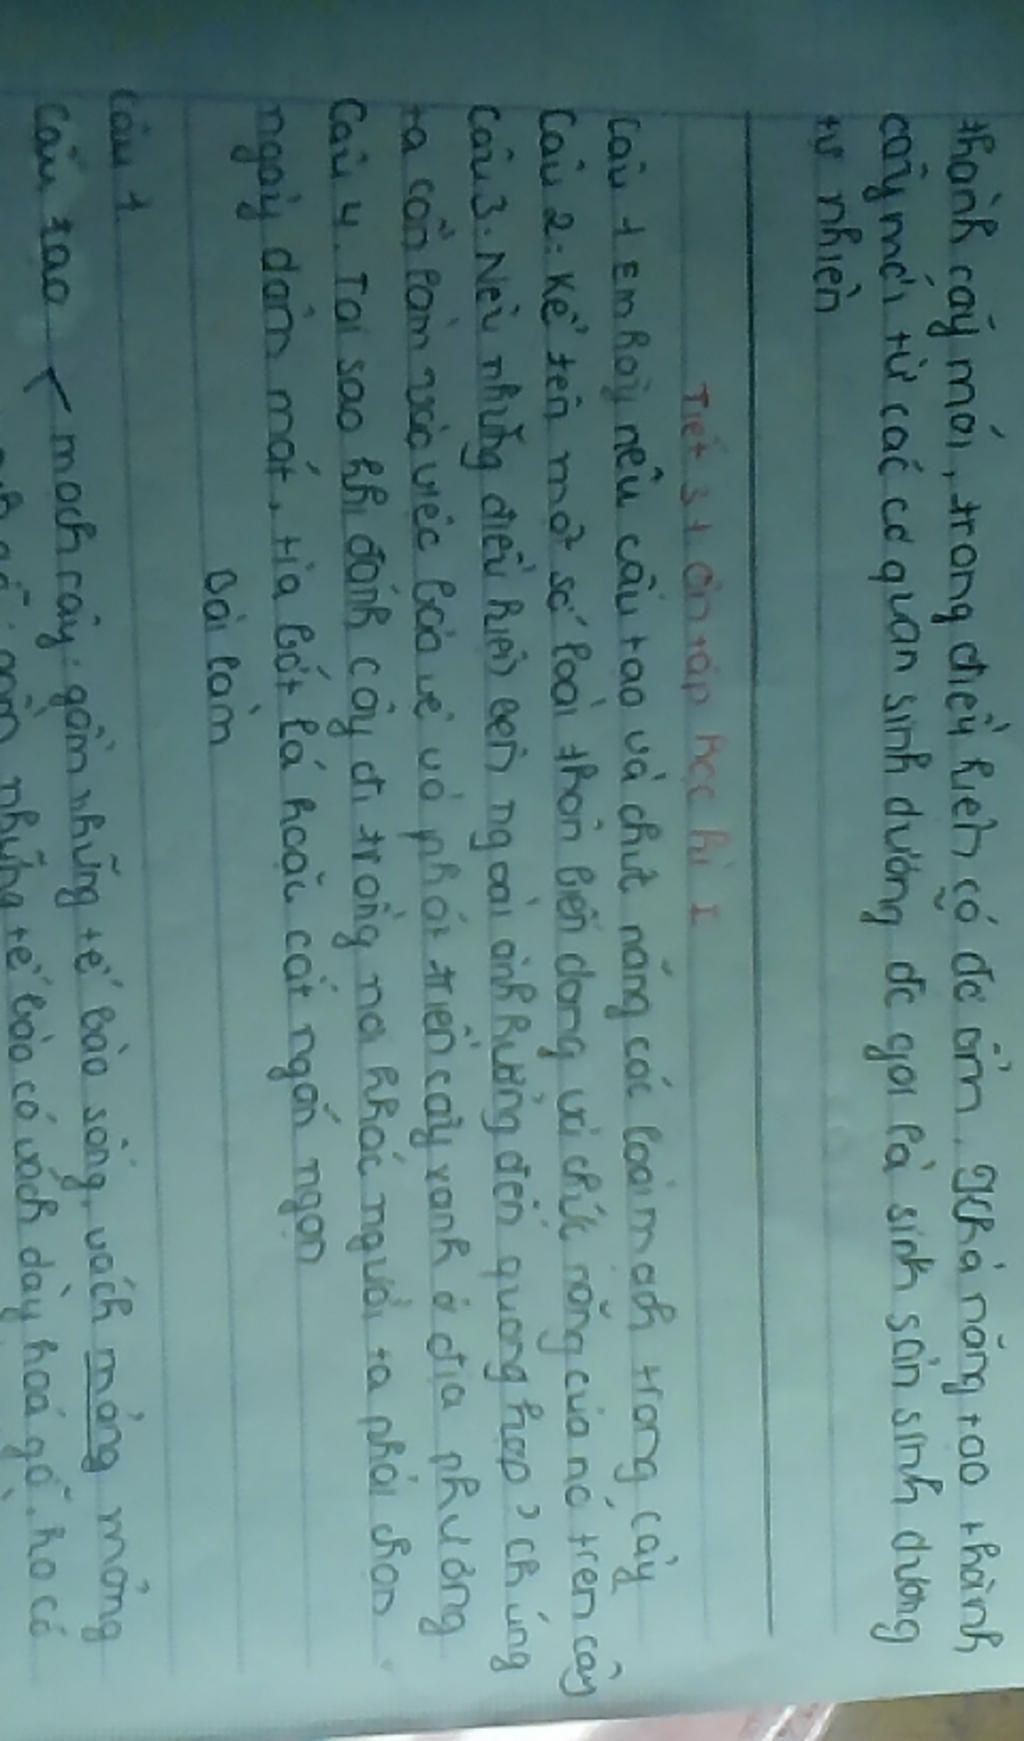 thành cây mới, trong điều kiện có độ ẩm. Khả năng tạo thành
cây mới từ các cơ quan sinh dưỡng đc gọi là sinh sản sinh dưỡng
tự nhiên
Tiết 31 Ôn tập học kì I
Câu 1 Em hãy nêu cấu tạo và chức năng các loại mạch trong cây
Câu 2: Kể tên một số loài thân biến dạng và chức năng của nó trên cây
Câu 3. Nêu những điều kiện bên ngoài ảnh hưởng đến quang hợp? chúng
ta cần làm việc bảo vệ và phát triển cây xanh ở địa phương
Câu 4. Tại sao khi đánh cây đi trồng nơi khác người ta phải chọn
ngày dâm mát, tỉa bớt lá hoặc cắt ngắn ngọn
Bài làm
Câu 1
Cấu tạo mạch rây: gồm những tế bào sống, vách mỏng mỏng
gồm những tế bào có vách dày hoá gỗ, ko có